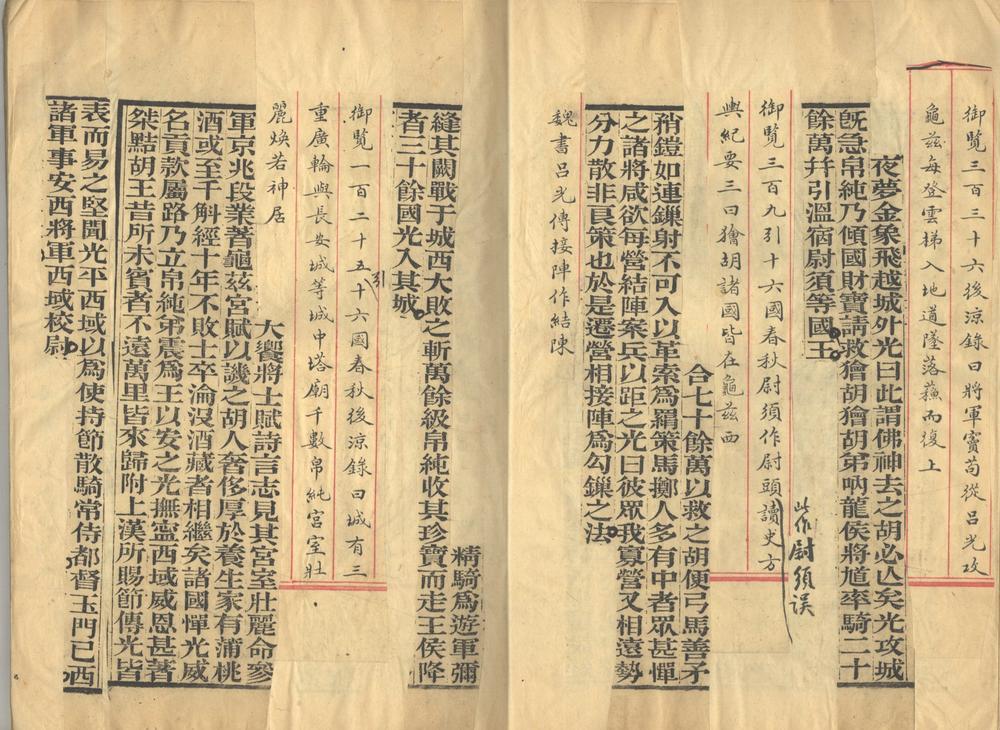 御覽三百三十六後涼錄曰將軍竇苟從呂光攻
龜茲每登雲梯入地道墜落蘓而復上
夜夢金象飛越城外光曰此謂佛神去之胡必亾矣光攻城
旣急帛純乃傾國財寶請救獪胡獪胡弟吶龍侯將馗率騎二十
餘萬幷引溫宿尉須等國王
御覽三百九引十六國春秋尉須作尉頭讀史方
輿紀要三曰獪胡諸國皆在龜茲西
此作尉須误
合七十餘萬以救之胡便弓馬善矛
矟鎧如連鏁射不可入以革索爲羂策馬擲人多有中者眾甚憚
之諸將咸欲每營結陣案兵以距之光曰彼眾我寡營又相遠勢
分力散非良策也於是遷營相接陣爲勾鏁之法
魏書呂光傳接陣作結陳
精騎爲遊軍彌
縫其闕戰于城西大敗之斬萬餘級帛純收其珍寶而走王侯降
者三十餘國光入其城
御覽一百二十五引十六國春秋後涼錄曰城有三
重廣輪與長安城等城中塔廟千數帛純宮室壯
麗煥若神居
大饗將士賦詩言志見其宮室壯麗命參
軍京兆段業著龜茲宮賦以譏之胡人奢侈厚於養生家有蒲桃
酒或至千斛經十年不敗士卒淪沒酒藏者相繼矣諸國憚光威
名貢款屬路乃立帛純弟震爲王以安之光撫寧西域威恩甚著
桀黠胡王昔所未賓者不遠萬里皆來歸附上漢所賜節傳光皆
表而易之堅聞光平西域以爲使持節散騎常侍都督玉門已西
諸軍事安西將軍西域校尉